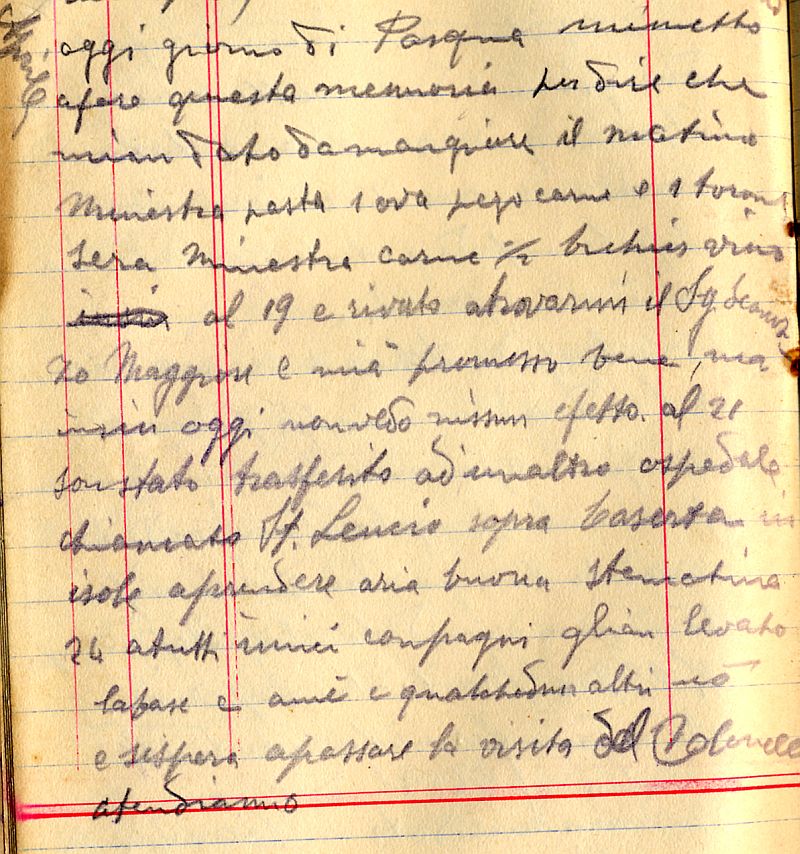 oggi giorno di Pasqua mimetto
afare questa memoria perdire che
mian dato damangiare il matino
Minestra pasta 1 ova pezo carne e 1
sera Minestra carne ½ bichier vino
al 19 e rivato atrovarmi il Sg
Maggiore e mià promesso bene, ma
insin oggi nonvedo nissun efetto. al 21
son stato trasferito adunaltro ospedale
chiamato St. Leucio sopra Caserta in
isole aprendere aria buona Stamatina
24 atutti imiei conpagni glian levato
labase e amè e qualchedun altri nò
e sispera apassare la visita del Colonello
atendiammo